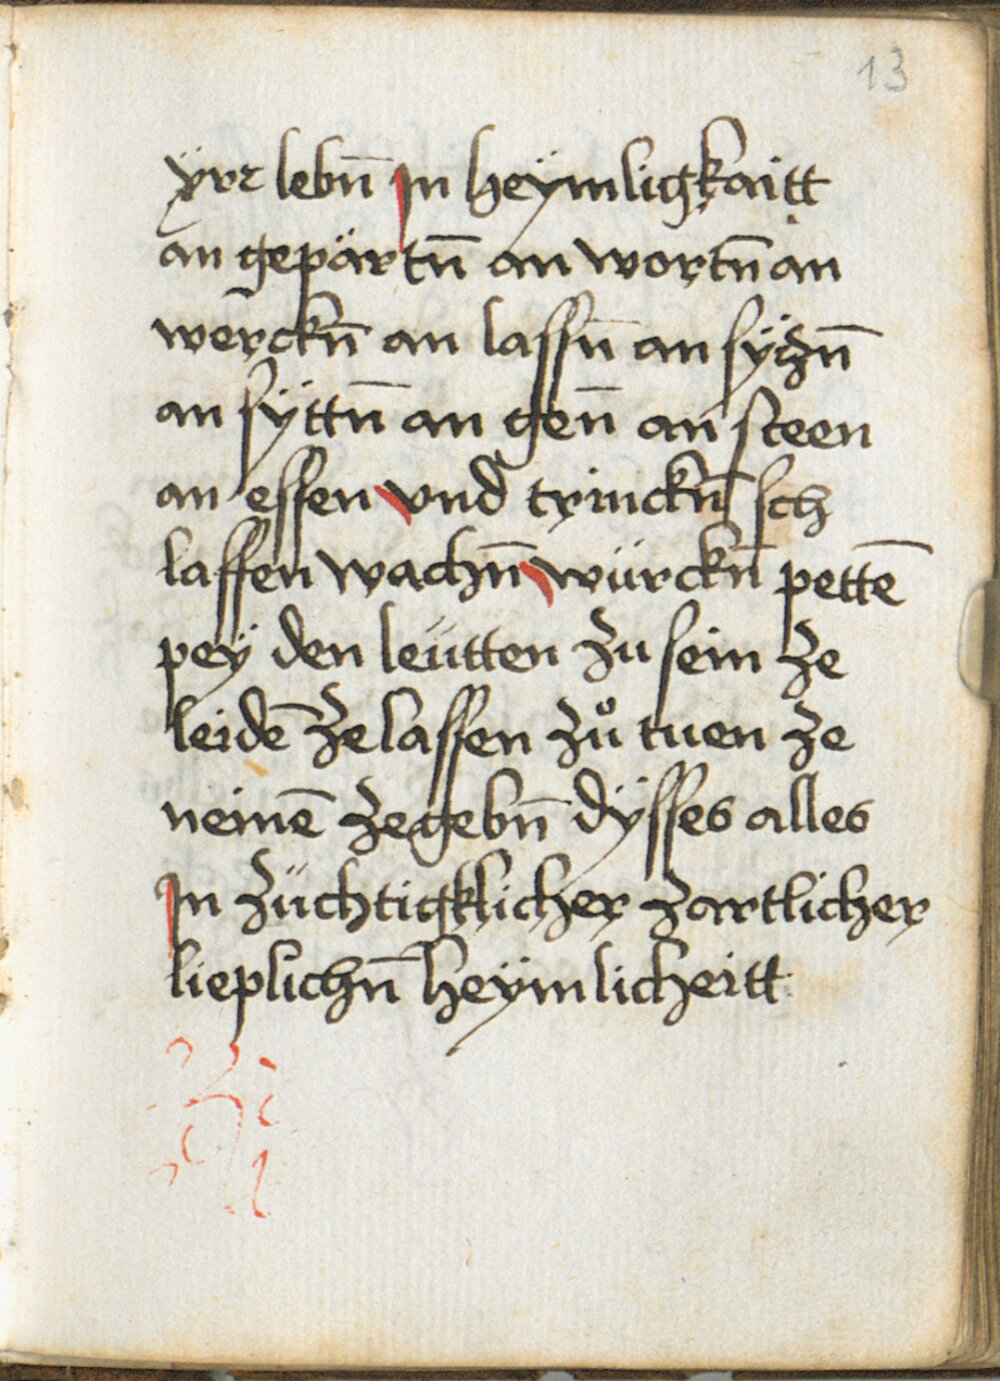 13
ÿrr lebn̄ jn heÿmligkaitt
an gepärtn̄ an wortn̄ an
werckn̄ an lassn̄ an sÿtzn̄
an sÿttn̄ an gen̄ an steen
an essen vnd trinckn̄ sch
laffen wachn̄ würckn̄ pettē
peÿ den leütten zu sein ze
leidē ze lassen zů tuen ze
neinē ze gebn̄ dÿsses alles
jn züchtigklicher zartlicher
lieplichn̄ heÿmlicheitt